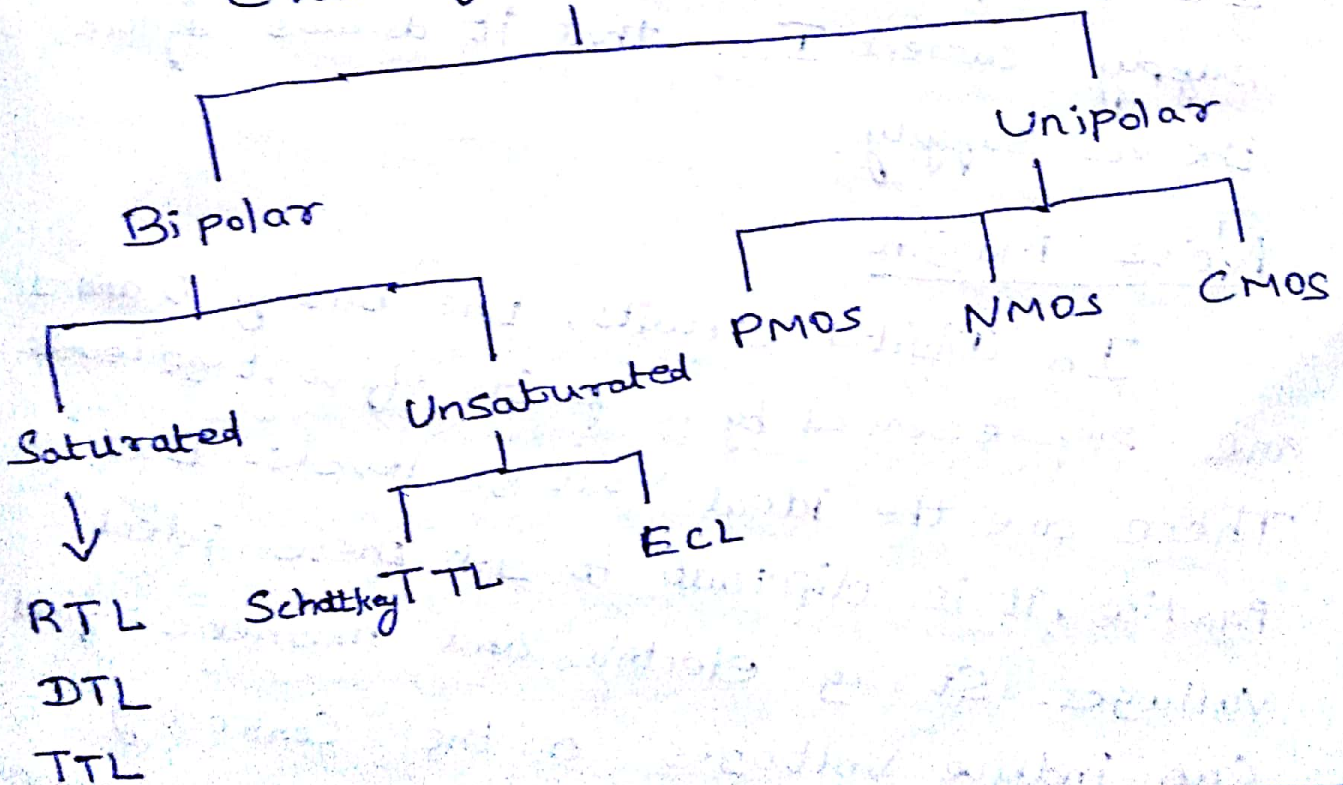 Unipolar
Bipolar
PMOS NMOS CMOS
Saturated Unsaturated
Schottkey TTL ECL
RTL
DTL
TTL